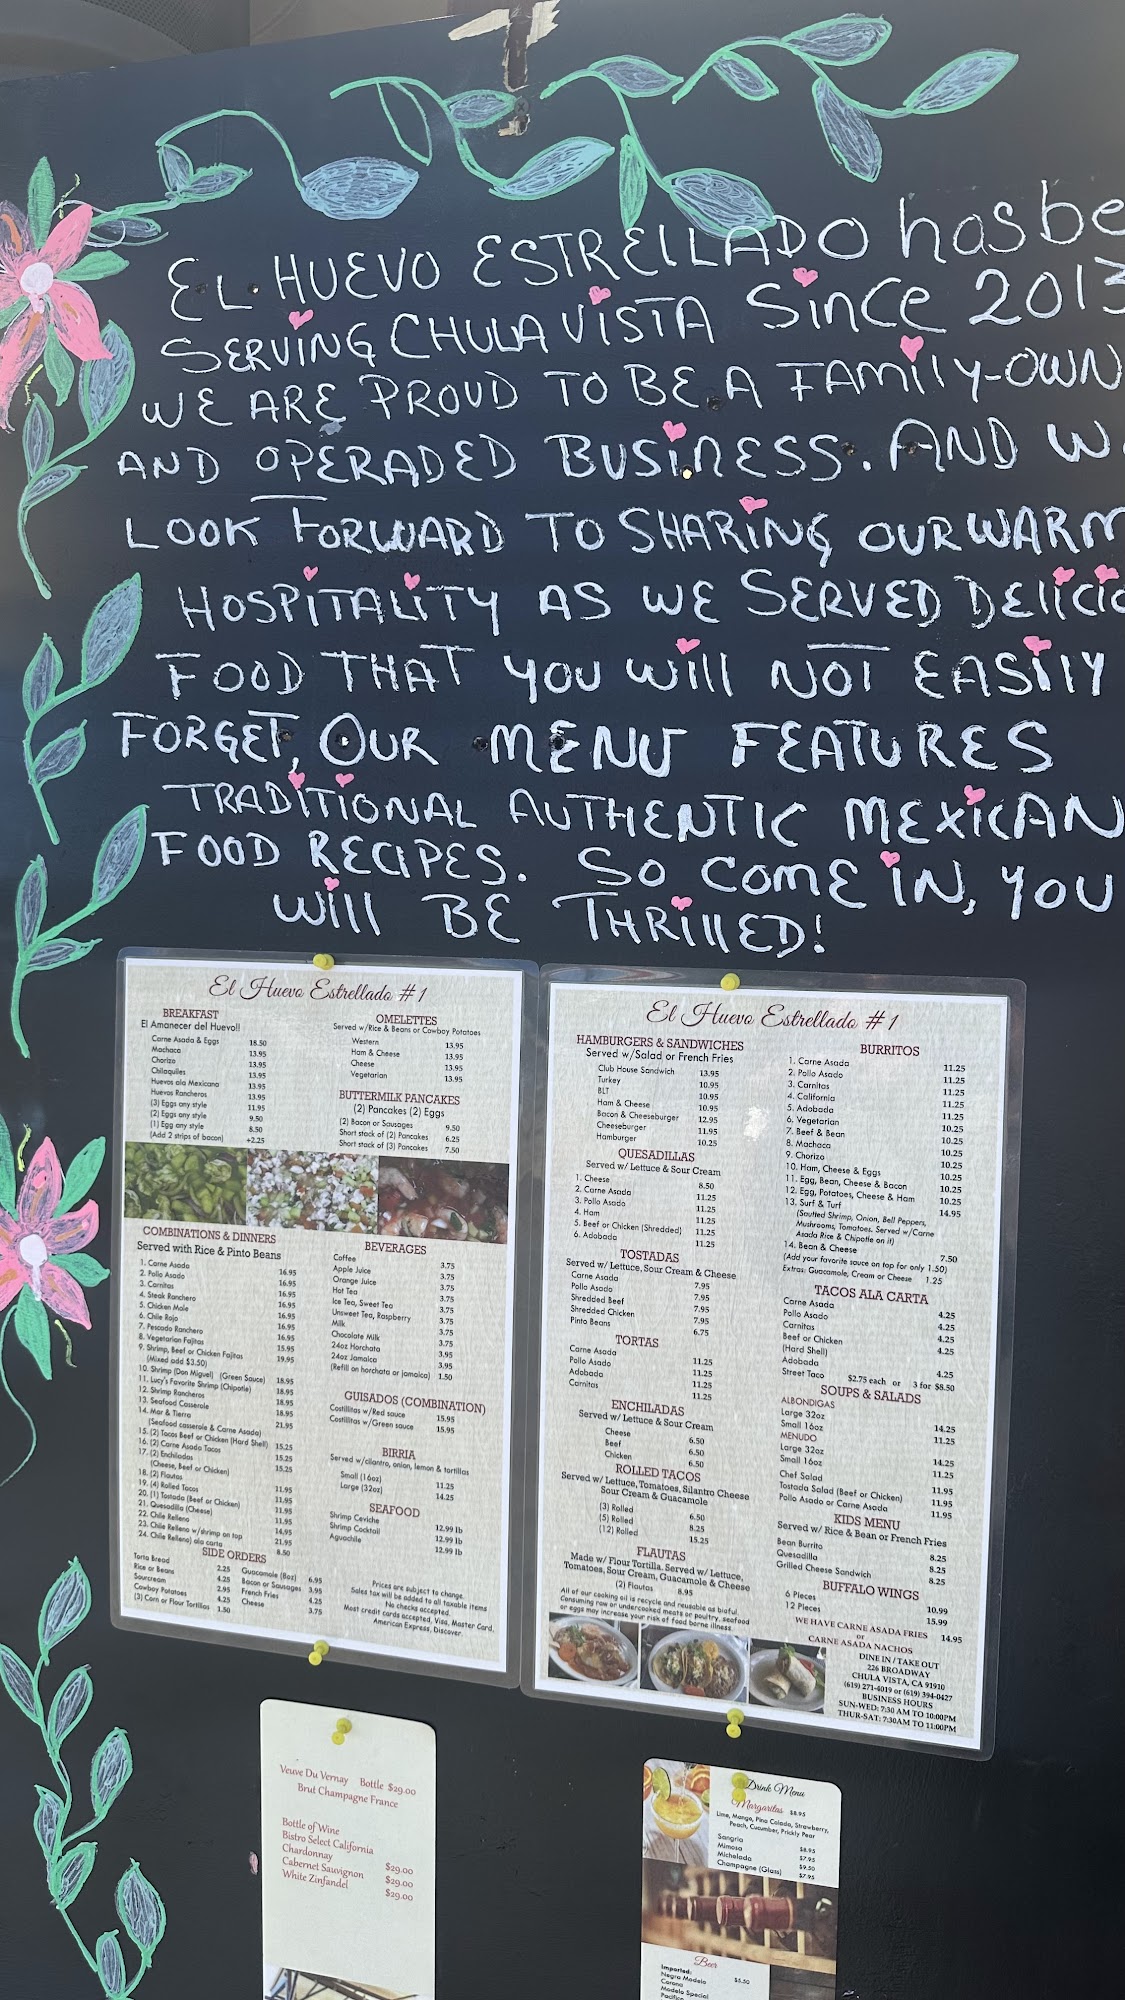 EL HUEVO ESTRELLADO has be
SERVING CHULA VISTA Since 2013
WE ARE PROUD TO BE A FAMily-OWN
AND OPERADED BUSiNESS. AND W
LOOK FORWARD TO SHARiNG OUR WARM
HOSPITALiTY AS WE SERVED DEliCiO
FOOD THAT YOU Will NOT EASilY
FORGET, OUR MENU FEATURES
TRADiTiONAL AUTHENTIC MEXiCAN
FOOD RECIPES. SO COME iN, YOU
Will BE THRillED!
El Huevo Estrellado #1
BREAKFAST
El Amanecer del Huevo!!
Carne Asada & Eggs 18.50
Machaca 13.95
Chorizo 13.95
Chilaquiles 13.95
Huevos ala Mexicana 13.95
Huevos Rancheros 13.95
(3) Eggs any style 11.95
(2) Eggs any style 9.50
(1) Egg any style 8.50
(Add 2 strips of bacon) +2.25
OMELETTES
Served w/Rice & Beans or Cowboy Potatoes
Western 13.95
Ham & Cheese 13.95
Cheese 13.95
Vegetarian 13.95
BUTTERMILK PANCAKES
(2) Pancakes (2) Eggs
(2) Bacon or Sausages 9.50
Short stack of (2) Pancakes 6.25
Short stack of (3) Pancakes 7.50
COMBINATIONS & DINNERS
Served with Rice & Pinto Beans
1. Carne Asada 16.95
2. Pollo Asado 16.95
3. Carnitas 16.95
4. Steak Ranchero 16.95
5. Chicken Mole 16.95
6. Chile Rojo 16.95
7. Pescado Ranchero 16.95
8. Vegetarian Fajitas 15.95
9. Shrimp, Beef or Chicken Fajitas 19.95
(Mixed add $3.50)
10. Shrimp (Don Miguel) (Green Sauce) 18.95
11. Lucy's Favorite Shrimp (Chipotle) 18.95
12. Shrimp Rancheros 18.95
13. Seafood Casserole 18.95
14. Mar & Tierra 21.95
(Seafood casserole & Carne Asada)
15. (2) Tacos Beef or Chicken (Hard Shell) 15.25
16. (2) Carne Asada Tacos 15.25
17. (2) Enchiladas 15.25
(Cheese, Beef or Chicken)
18. (2) Flautas 11.95
19. (4) Rolled Tacos 11.95
20. (1) Tostada (Beef or Chicken) 11.95
21. Quesadilla (Cheese) 11.95
22. Chile Relleno 14.95
23. Chile Relleno w/shrimp on top 21.95
24. Chile Relleno) ala carta 8.50
BEVERAGES
Coffee 3.75
Apple Juice 3.75
Orange Juice 3.75
Hot Tea 3.75
Ice Tea, Sweet Tea 3.75
Unsweet Tea, Raspberry 3.75
Milk 3.75
Chocolate Milk 3.75
24oz Horchata 3.95
24oz Jamaica 3.95
(Refill on horchata or jamaica) 1.50
GUISADOS (COMBINATION)
Costillitas w/Red sauce 15.95
Costillitas w/Green sauce 15.95
BIRRIA
Served w/cilantro, onion, lemon & tortillas
Small (16oz) 11.25
Large (32oz) 14.25
SEAFOOD
Shrimp Ceviche 12.99 lb
Shrimp Cocktail 12.99 lb
Aguachile 12.99 lb
SIDE ORDERS
Torta Bread 2.25
Rice or Beans 4.25
Sourcream 2.95
Cowboy Potatoes 4.25
(3) Corn or Flour Tortillas 1.50
Guacamole (8oz) 6.95
Bacon or Sausages 3.95
French Fries 4.25
Cheese 3.75
Prices are subject to change.
Sales tax will be added to all taxable items
No checks accepted.
Most credit cards accepted, Visa, Master Card,
American Express, Discover.
El Huevo Estrellado #1
HAMBURGERS & SANDWICHES
Served w/Salad or French Fries
Club House Sandwich 13.95
Turkey 10.95
BLT 10.95
Ham & Cheese 10.95
Bacon & Cheeseburger 12.95
Cheeseburger 11.95
Hamburger 10.25
QUESADILLAS
Served w/ Lettuce & Sour Cream
1. Cheese 8.50
2. Carne Asada 11.25
3. Pollo Asado 11.25
4. Ham 11.25
5. Beef or Chicken (Shredded) 11.25
6. Adobada 11.25
TOSTADAS
Served w/ Lettuce, Sour Cream & Cheese
Carne Asada 7.95
Pollo Asado 7.95
Shredded Beef 7.95
Shredded Chicken 7.95
Pinto Beans 6.75
TORTAS
Carne Asada 11.25
Pollo Asado 11.25
Adobada 11.25
Carnitas 11.25
ENCHILADAS
Served w/ Lettuce & Sour Cream
Cheese 6.50
Beef 6.50
Chicken 6.50
ROLLED TACOS
Served w/ Lettuce, Tomatoes, Silantro Cheese
Sour Cream & Guacamole
(3) Rolled 6.50
(5) Rolled 8.25
(12) Rolled 15.25
FLAUTAS
Made w/ Flour Tortilla. Served w/ Lettuce,
Tomatoes, Sour Cream, Guacamole & Cheese
(2) Flautas 8.95
All of our cooking oil is recycle and reusable as biofuel.
Consuming raw or undercooked meats or poultry, seafood
or eggs may increase your risk of food borne illness.
BURRITOS
1. Carne Asada 11.25
2. Pollo Asado 11.25
3. Carnitas 11.25
4. California 11.25
5. Adobada 11.25
6. Vegetarian 10.25
7. Beef & Bean 10.25
8. Machaca 10.25
9. Chorizo 10.25
10. Ham, Cheese & Eggs 10.25
11. Egg, Bean, Cheese & Bacon 10.25
12. Egg, Potatoes, Cheese & Ham 10.25
13. Surf & Turf 14.95
(Sautted Shrimp, Onion, Bell Peppers,
Mushrooms, Tomatoes. Served w/Carne
Asada Rice & Chipotle on it)
14. Bean & Cheese 7.50
(Add your favorite sauce on top for only 1.50)
Extras: Guacamole, Cream or Cheese 1.25
TACOS ALA CARTA
Carne Asada 4.25
Pollo Asado 4.25
Carnitas 4.25
Beef or Chicken 4.25
(Hard Shell)
Adobada 4.25
Street Taco $2.75 each or 3 for $8.50
SOUPS & SALADS
ALBONDIGAS
Large 32oz 14.25
Small 16oz 11.25
MENUDO
Large 32oz 14.25
Small 16oz 11.25
Chef Salad 11.95
Tostada Salad (Beef or Chicken) 11.95
Pollo Asado or Carne Asada 11.95
KIDS MENU
Served w/ Rice & Bean or French Fries
Bean Burrito 8.25
Quesadilla 8.25
Grilled Cheese Sandwich 8.25
BUFFALO WINGS
6 Pieces 10.99
12 Pieces 15.99
WE HAVE CARNE ASADA FRIES
or 14.95
CARNE ASADA NACHOS
DINE IN / TAKE OUT
226 BROADWAY
CHULA VISTA, CA 91910
(619) 271-4019 or (619) 394-0427
BUSINESS HOURS
SUN-WED: 7:30 AM TO 10:00PM
THUR-SAT: 7:30AM TO 11:00PM
Veuve Du Vernay Bottle $29.00
Brut Champagne France
Bottle of Wine
Bistro Select California
Chardonnay $29.00
Cabernet Sauvignon $29.00
White Zinfandel $29.00
Drink Menu
Margaritas $8.95
Lime, Mango, Pina Colada, Strawberry,
Peach, Cucumber, Prickly Pear
Sangria $8.95
Mimosa $7.95
Michelada $9.50
Champagne (Glass) $7.95
Beer
Imported: $5.50
Negra Modelo
Corona
Modelo Special
Pacifico